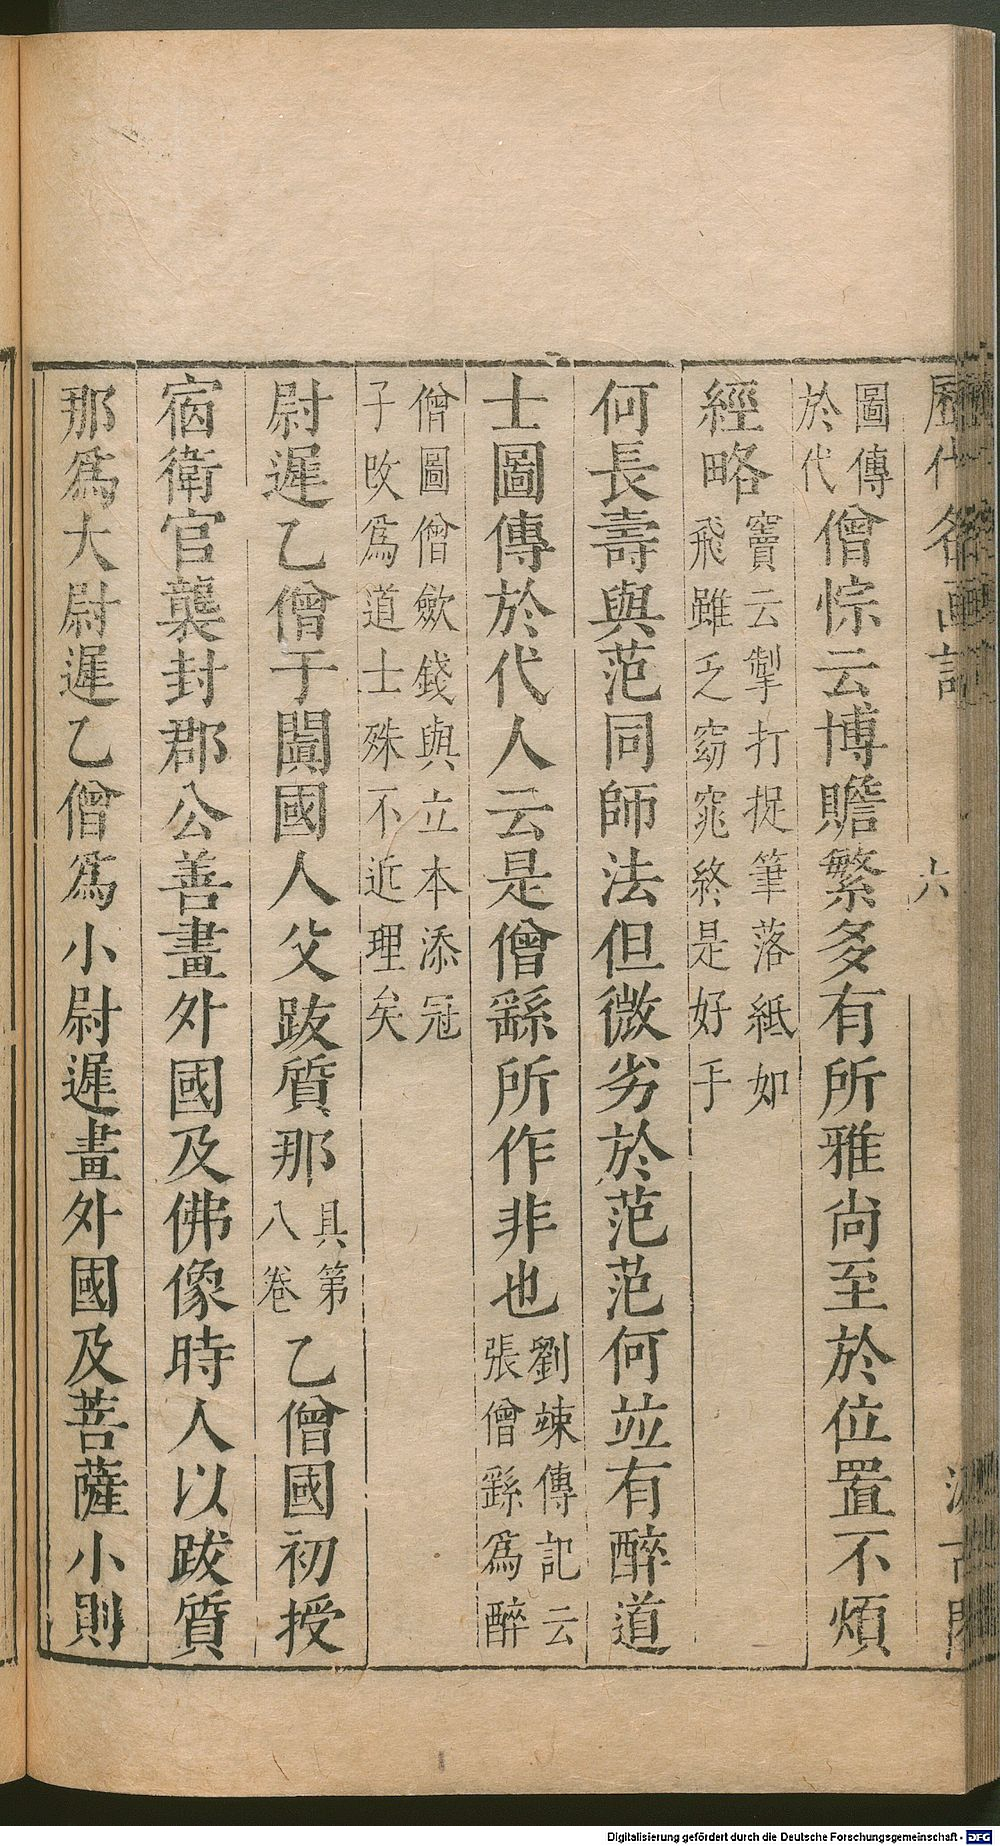 歷代名畫記
六
汲古閣
圖傳於代僧悰云博贍繁多有所雅尚至於位置不煩
經略竇云掣打捉筆落紙如飛雖乏窈窕終是好手
何長壽與范同師法但微劣於范范何並有醉道
士圖傳於代人云是僧繇所作非也劉竦傳記云張僧繇爲醉
僧圖僧歛錢與立本添冠子改爲道士殊不近理矣
尉遲乙僧于闐國人父跋質那具第八卷乙僧國初授
宿衛官襲封郡公善畫外國及佛像時人以跋質
那爲大尉遲乙僧爲小尉遲畫外國及菩薩小則
Digitalisierung gefördert durch die Deutsche Forschungsgemeinschaft - DFG